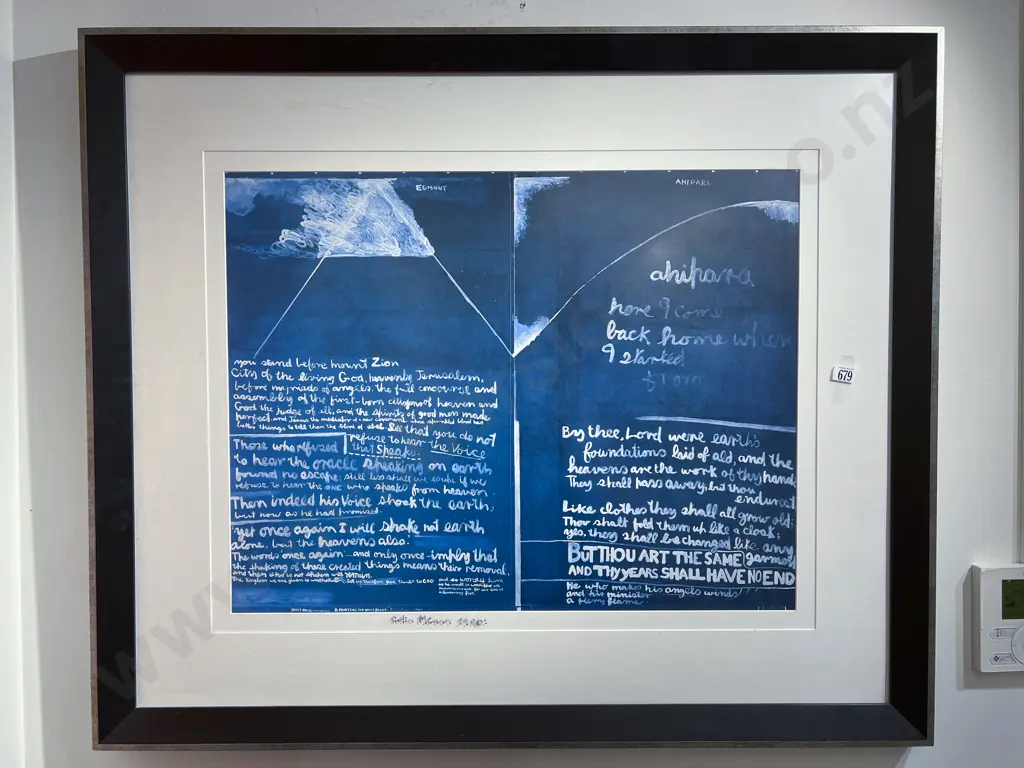 EGMONT
you stand before mount Zion
City of the living God, heavenly Jerusalem,
before myriads of angels, the full concourse and
assembly of the first-born citizens of heaven and
God the judge of all, and the spirits of good men made
perfect, and Jesus the mediator of a new covenant, whose sprinkled blood has
better things to tell than the blood of abel. See that you do not
refuse to hear the Voice
that speaks.
Those who refused
to hear the oracle speaking on earth
found no escape; still less shall we escape if we
refuse to hear the ONE who speaks from heaven.
Then indeed his Voice shook the earth,
but now as he had promised.
yet once again I will shake not earth
alone, but the heavens also.
The words 'once again' and only once imply that
the shaking of these created things means their removal,
and then what is not shaken will remain.
The kingdom we are given is unshakable
AHIPARA
ahipara
here I come
back home where
I started
from
By thee, Lord were earth's
foundations laid of old, and the
heavens are the work of thy hands
They shall pass away, but thou
endurest
Like clothes they shall all grow old;
Thou shalt fold them up like a cloak;
yes, they shall be changed like any
garment
BUT THOU ART THE SAME
AND THY YEARS SHALL HAVE NO END
He who makes his angels winds
and his ministers
a fiery flame
679
www.
o.nz